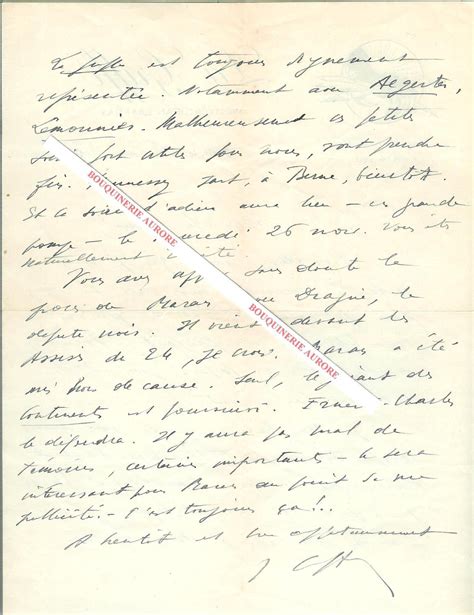 est toujours dignement
représentée. Notamment avec Aegerter,
Lemonnier. Malheureusement ces petites
sont utiles pour nous, vont prendre
fin. part, à Berne, bientôt.
Et la soirée d'adieu aura lieu - en grande
pompe - le 26 nov. Vous êtes
naturellement
Vous avez sans doute le
procès de Maran ou Diagne, le
député noir. Il vient devant les
Assises le 24, je crois. Maran a été
mis hors de cause. Seul, le des
continents est poursuivi. Ernest-Charles
le défendra. Il y aura pas mal de
témoins, certains importants - ce sera
intéressant pour Maran au point de vue
publicité - C'est toujours ça !..
A bientôt et bien affectueusement
BOUQUINERIE AURORE
BOUQUINERIE AURORE